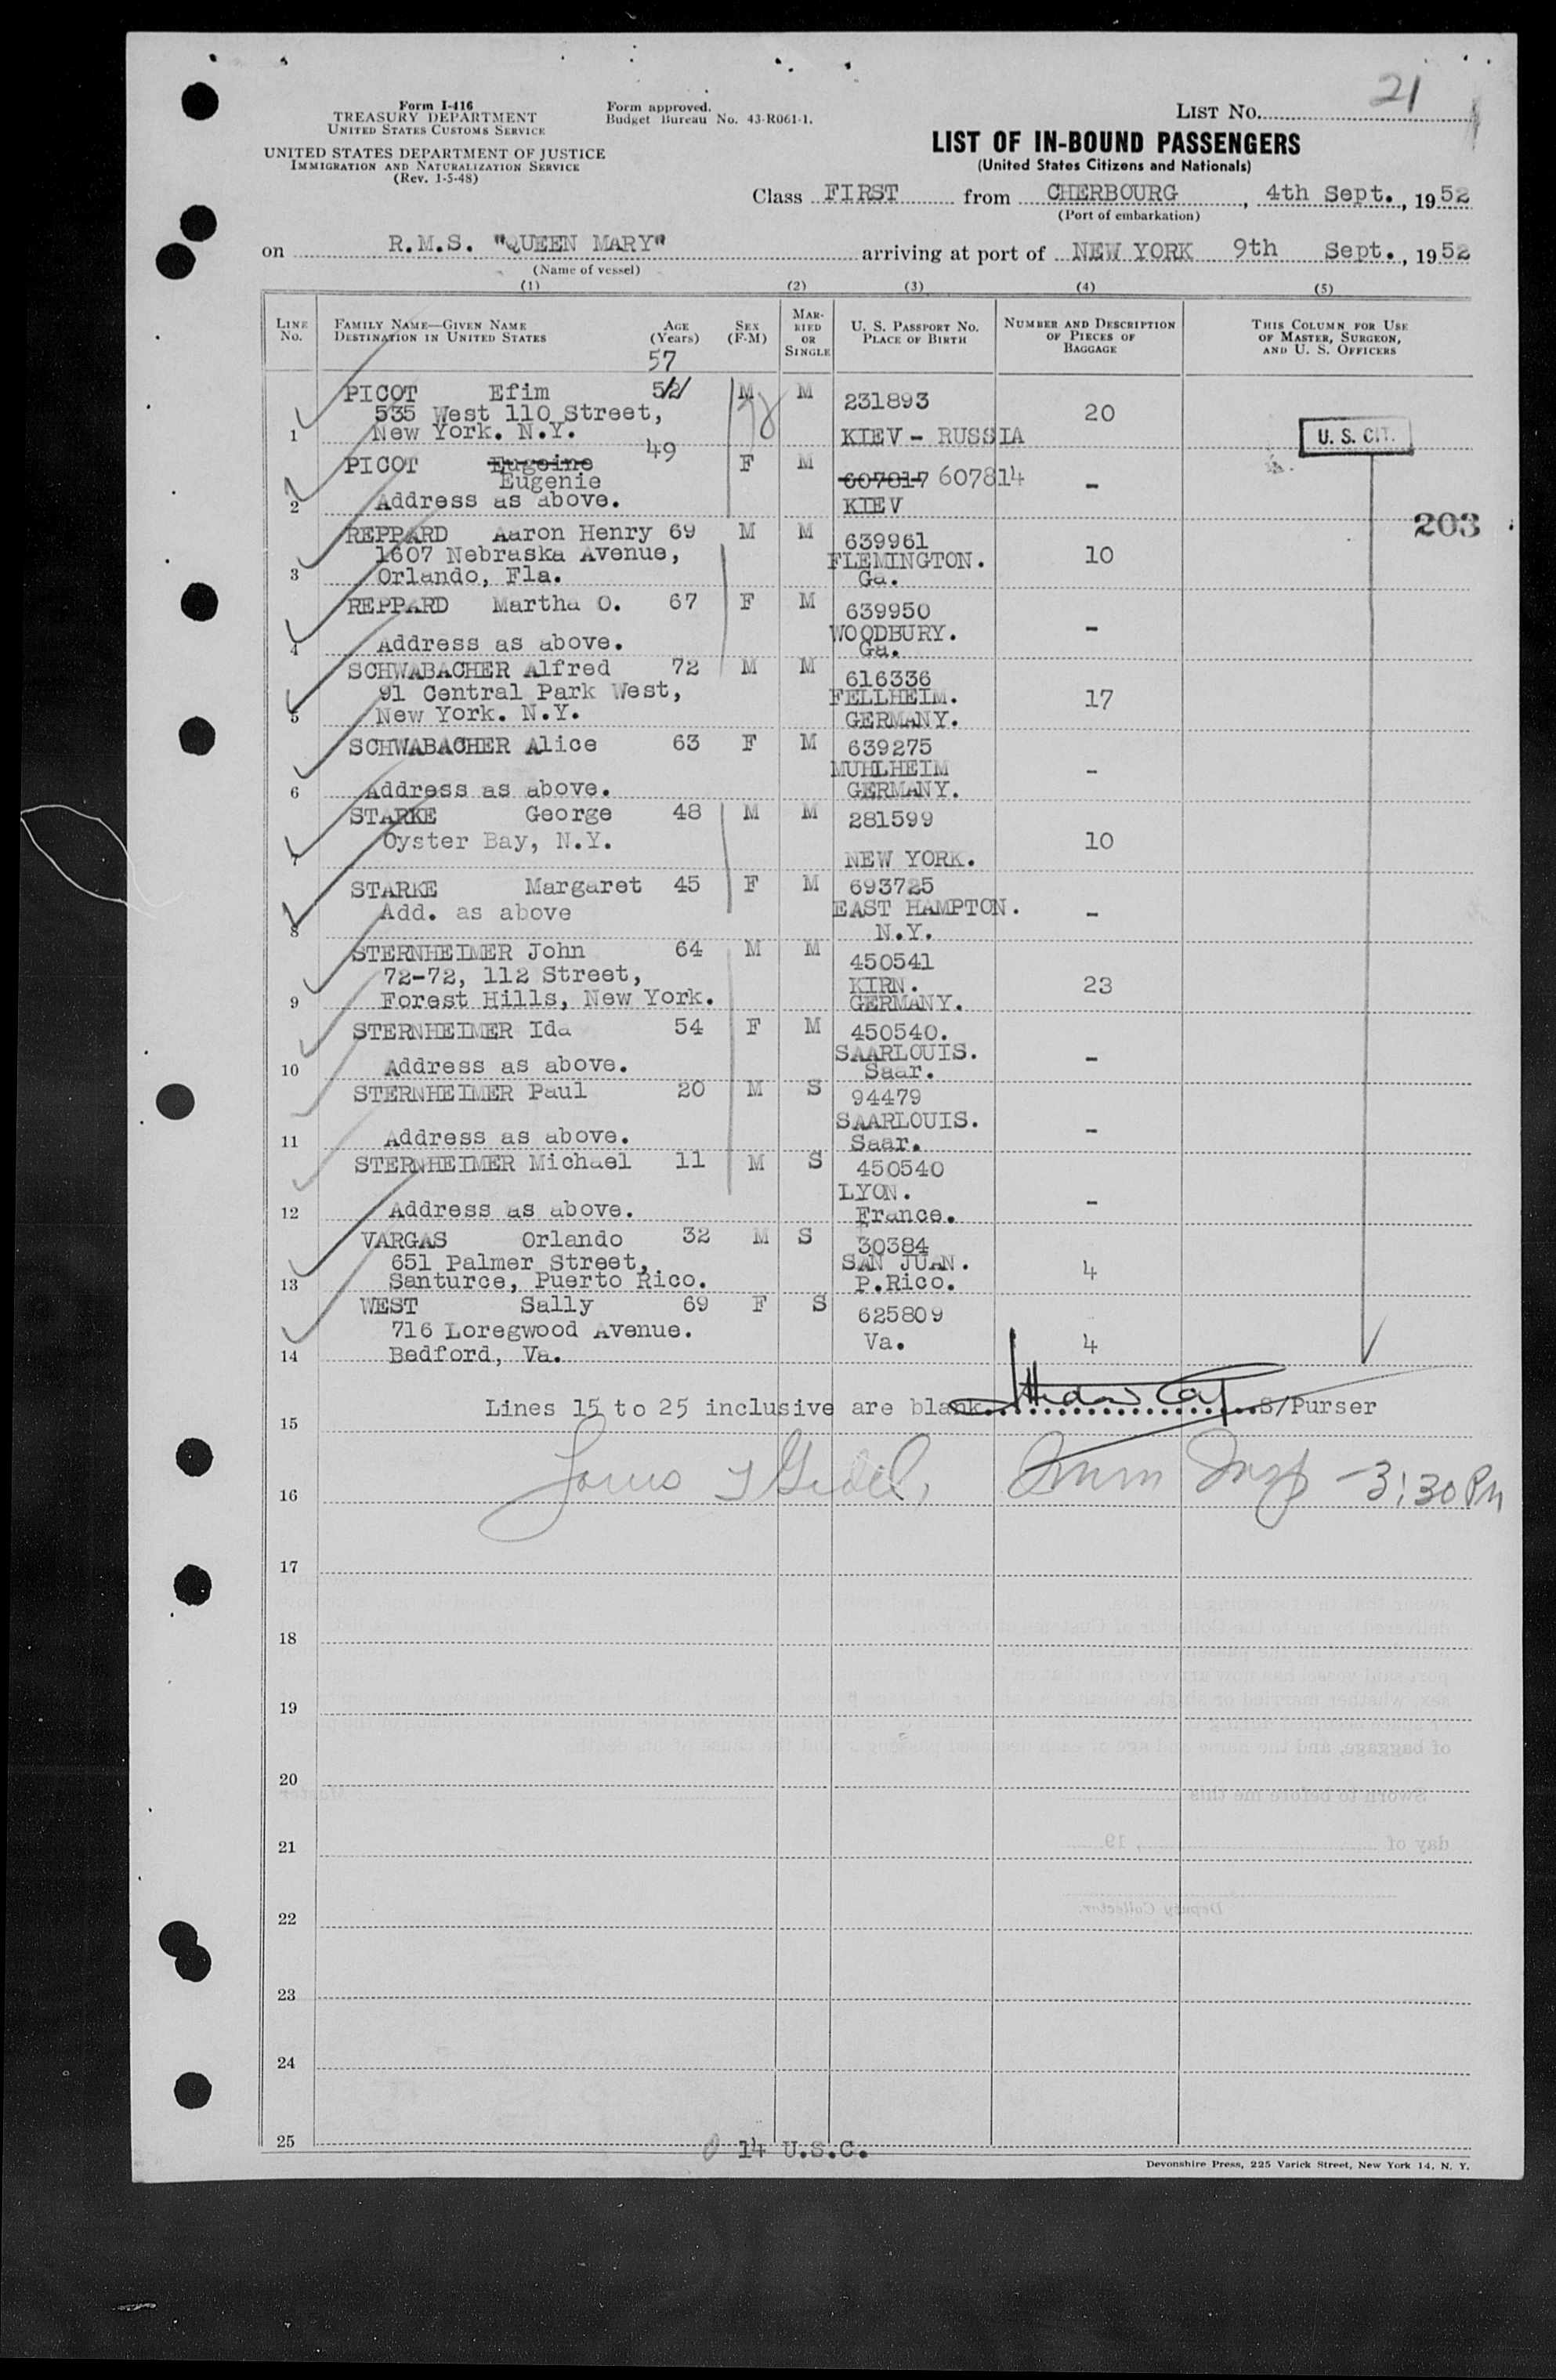 Form I-416
TREASURY DEPARTMENT
UNITED STATES CUSTOMS SERVICE
UNITED STATES DEPARTMENT OF JUSTICE
IMMIGRATION AND NATURALIZATION SERVICE
(Rev. 1-5-48)
Form approved.
Budget Bureau No. 43-R061-1.
LIST No. 21
LIST OF IN-BOUND PASSENGERS
(United States Citizens and Nationals)
Class FIRST from CHERBOURG, 4th Sept., 1952
(Port of embarkation)
on R.M.S. "QUEEN MARY" arriving at port of NEW YORK 9th Sept., 1952
(Name of vessel)
(1) (2) (3) (4) (5)
LINE No. FAMILY NAME—GIVEN NAME DESTINATION IN UNITED STATES AGE (Years) SEX (F-M) MARRIED OR SINGLE U. S. PASSPORT No. PLACE OF BIRTH NUMBER AND DESCRIPTION OF PIECES OF BAGGAGE THIS COLUMN FOR USE OF MASTER, SURGEON, AND U. S. OFFICERS
57
PICOT Efim 52 M M 231893
535 West 110 Street, 20
1 New York. N.Y. KIEV - RUSSIA U. S. CIT.
PICOT Eugeine 49 F M
Eugenie 607817 607814 -
2 Address as above. KIEV
203
REPPARD Aaron Henry 69 M M 639961
1607 Nebraska Avenue, FLEMINGTON. 10
3 Orlando, Fla. Ga.
REPPARD Martha O. 67 F M 639950
WOODBURY. -
4 Address as above. Ga.
SCHWABACHER Alfred 72 M M 616336
91 Central Park West, FELLHEIM. 17
5 New York. N.Y. GERMANY.
SCHWABACHER Alice 63 F M 639275
MUHLHEIM -
6 Address as above. GERMANY.
STARKE George 48 M M 281599
Oyster Bay, N.Y. 10
7 NEW YORK.
STARKE Margaret 45 F M 693725
Add. as above EAST HAMPTON. -
8 N.Y.
STERNHEIMER John 64 M M 450541
72-72, 112 Street, KIRN. 23
9 Forest Hills, New York. GERMANY.
STERNHEIMER Ida 54 F M 450540.
SAARLOUIS. -
10 Address as above. Saar.
STERNHEIMER Paul 20 M S 94479
SAARLOUIS. -
11 Address as above. Saar.
STERNHEIMER Michael 11 M S 450540
LYON. -
12 Address as above. France.
VARGAS Orlando 32 M S 30384
651 Palmer Street, SAN JUAN. 4
13 Santurce, Puerto Rico. P.Rico.
WEST Sally 69 F S 625809
716 Loregwood Avenue. Va. 4
14 Bedford, Va.
15 Lines 15 to 25 inclusive are blank. S/Purser
16 Imm Insp - 3:30 PM
17
18
19
20
21
22
23
24
25
14 U.S.C.
Devonshire Press, 225 Varick Street, New York 14, N. Y.